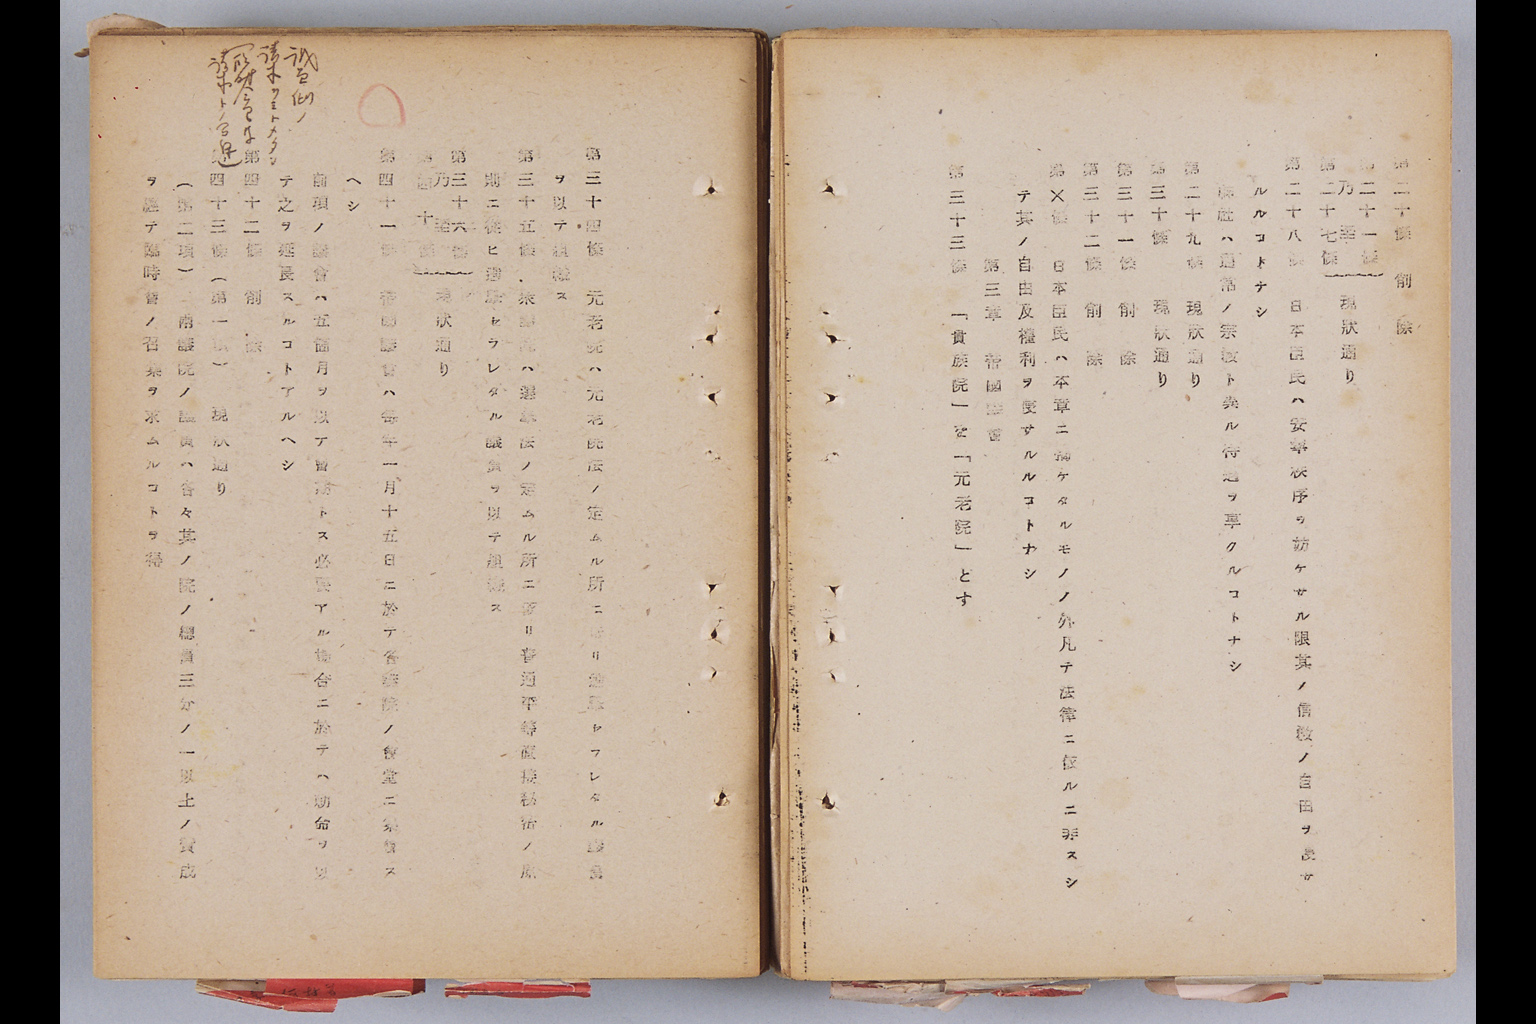 第二十條 削除
第二十一條
乃至
第二十七條
現狀通り
第二十八條 日本臣民ハ安寧秩序ヲ妨ケサル限其ノ信敎ノ自由ヲ侵サ
ルルコトナシ
神社ハ通常ノ宗敎ト異ル待遇ヲ享クルコトナシ
第二十九條 現狀通り
第三十條 現狀通り
第三十一條 削除
第三十二條 削除
第×條 日本臣民ハ本章ニ揭ケタルモノノ外凡テ法律ニ依ルニ非スシ
テ其ノ自由及權利ヲ侵サルルコトナシ
第三章 帝國議會
第三十三條 「貴族院」を「元老院」とす
第三十四條 元老院ハ元老院法ノ定ムル所ニ依リ選擧セラレタル議員
ヲ以テ組織ス
第三十五條 衆議院ハ選擧法ノ定ムル所ニ依リ普通平等直接秘密ノ原
則ニ從ヒ選擧セラレタル議員ヲ以テ組織ス
第三十六條
乃至
第四十條
現狀通り
第四十一條 帝國議會ハ每年一月十五日ニ於テ各議院ノ議堂ニ集會ス
ヘシ
前項ノ議會ハ五箇月ヲ以テ會期トス必要アル場合ニ於テハ勅命ヲ以
テ之ヲ延長スルコトアルヘシ
第四十二條 削除
第四十三條(第一項) 現狀通り
(第二項) 兩議院ノ議員ハ各々其ノ院ノ總員三分ノ一以上ノ賛成
ヲ經テ臨時會ノ召集ヲ求ムルコトヲ得